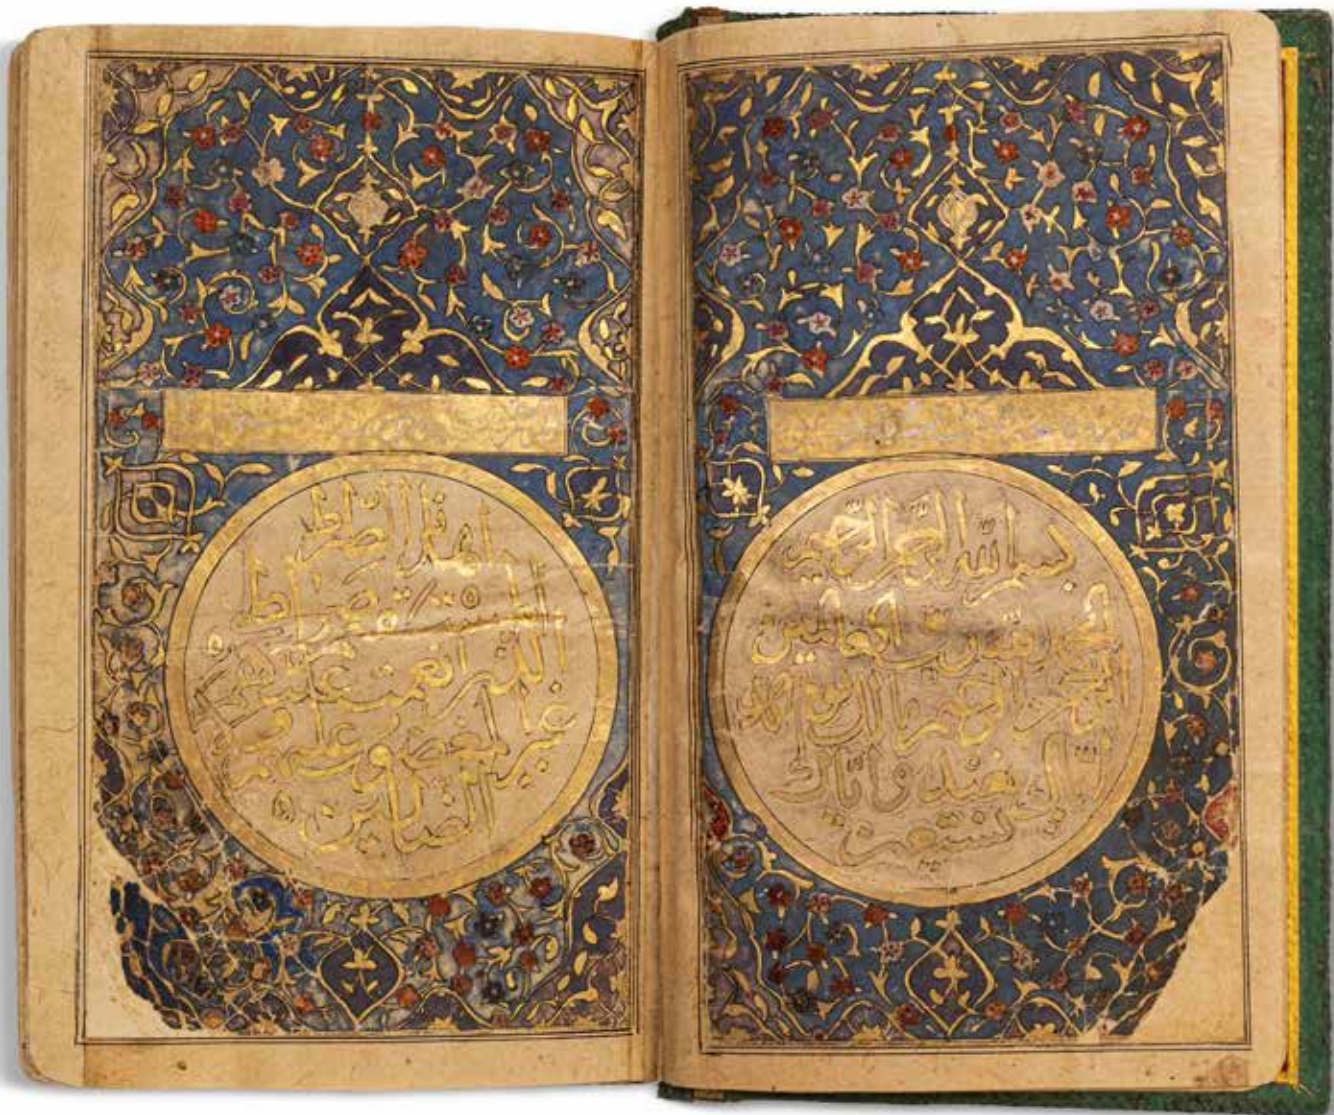 بسم الله الرحمن الرحيم
الحمد لله رب العالمين
الرحمن الرحيم مالك يوم الد
ين اياك نعبد واياك
نستعين
اهدنا الصراط
المستقيم صراط
الذين انعمت عليهم
غير المغضوب عليهم ولا
الضالين